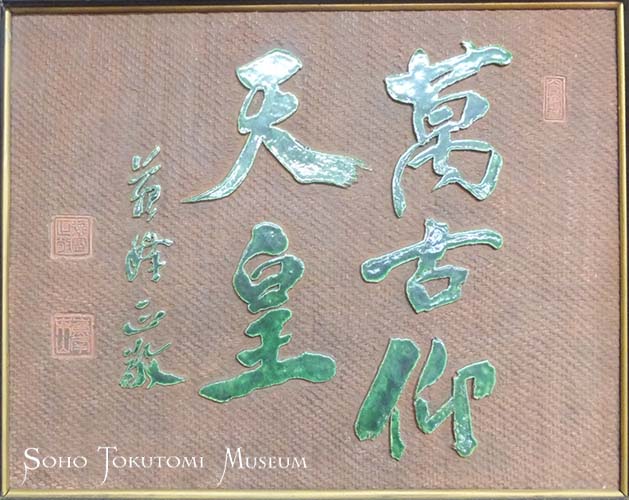 萬古仰
天皇
蘇峰正敬
Soho Tokutomi Museum